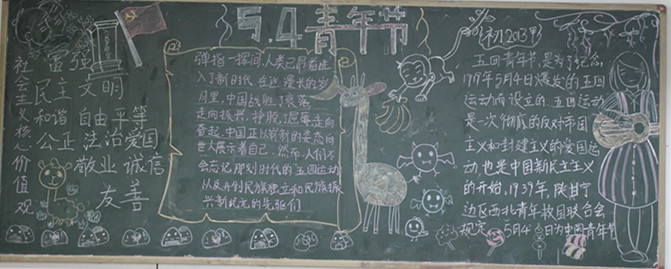 5.4青年节
初2013级
社会主义核心价值观
富强
民主 文明
和谐 自由 平等
公正 法治 爱国
敬业 诚信
友善
弹指一挥间,人类已昂首进
入了新时代,在这漫长的岁
月里,中国战胜了衰落
走向振兴,挣脱了屈辱走向
奋起,中国正以崭新的姿态向
世人展示着自己,然而人们不
会忘记划时代的五四运动
以及为了民族独立和民族振
兴献元的先驱们
五四青年节是为了纪念
1919年5月4日爆发的五四
运动而设立的,五四运动
是一次彻底的反对帝国
主义和封建主义的爱国运
动,也是中国新民主主义
的开始,1939年,陕甘宁
边区西北青年救国联合会
规定 5月4日为中国青年节